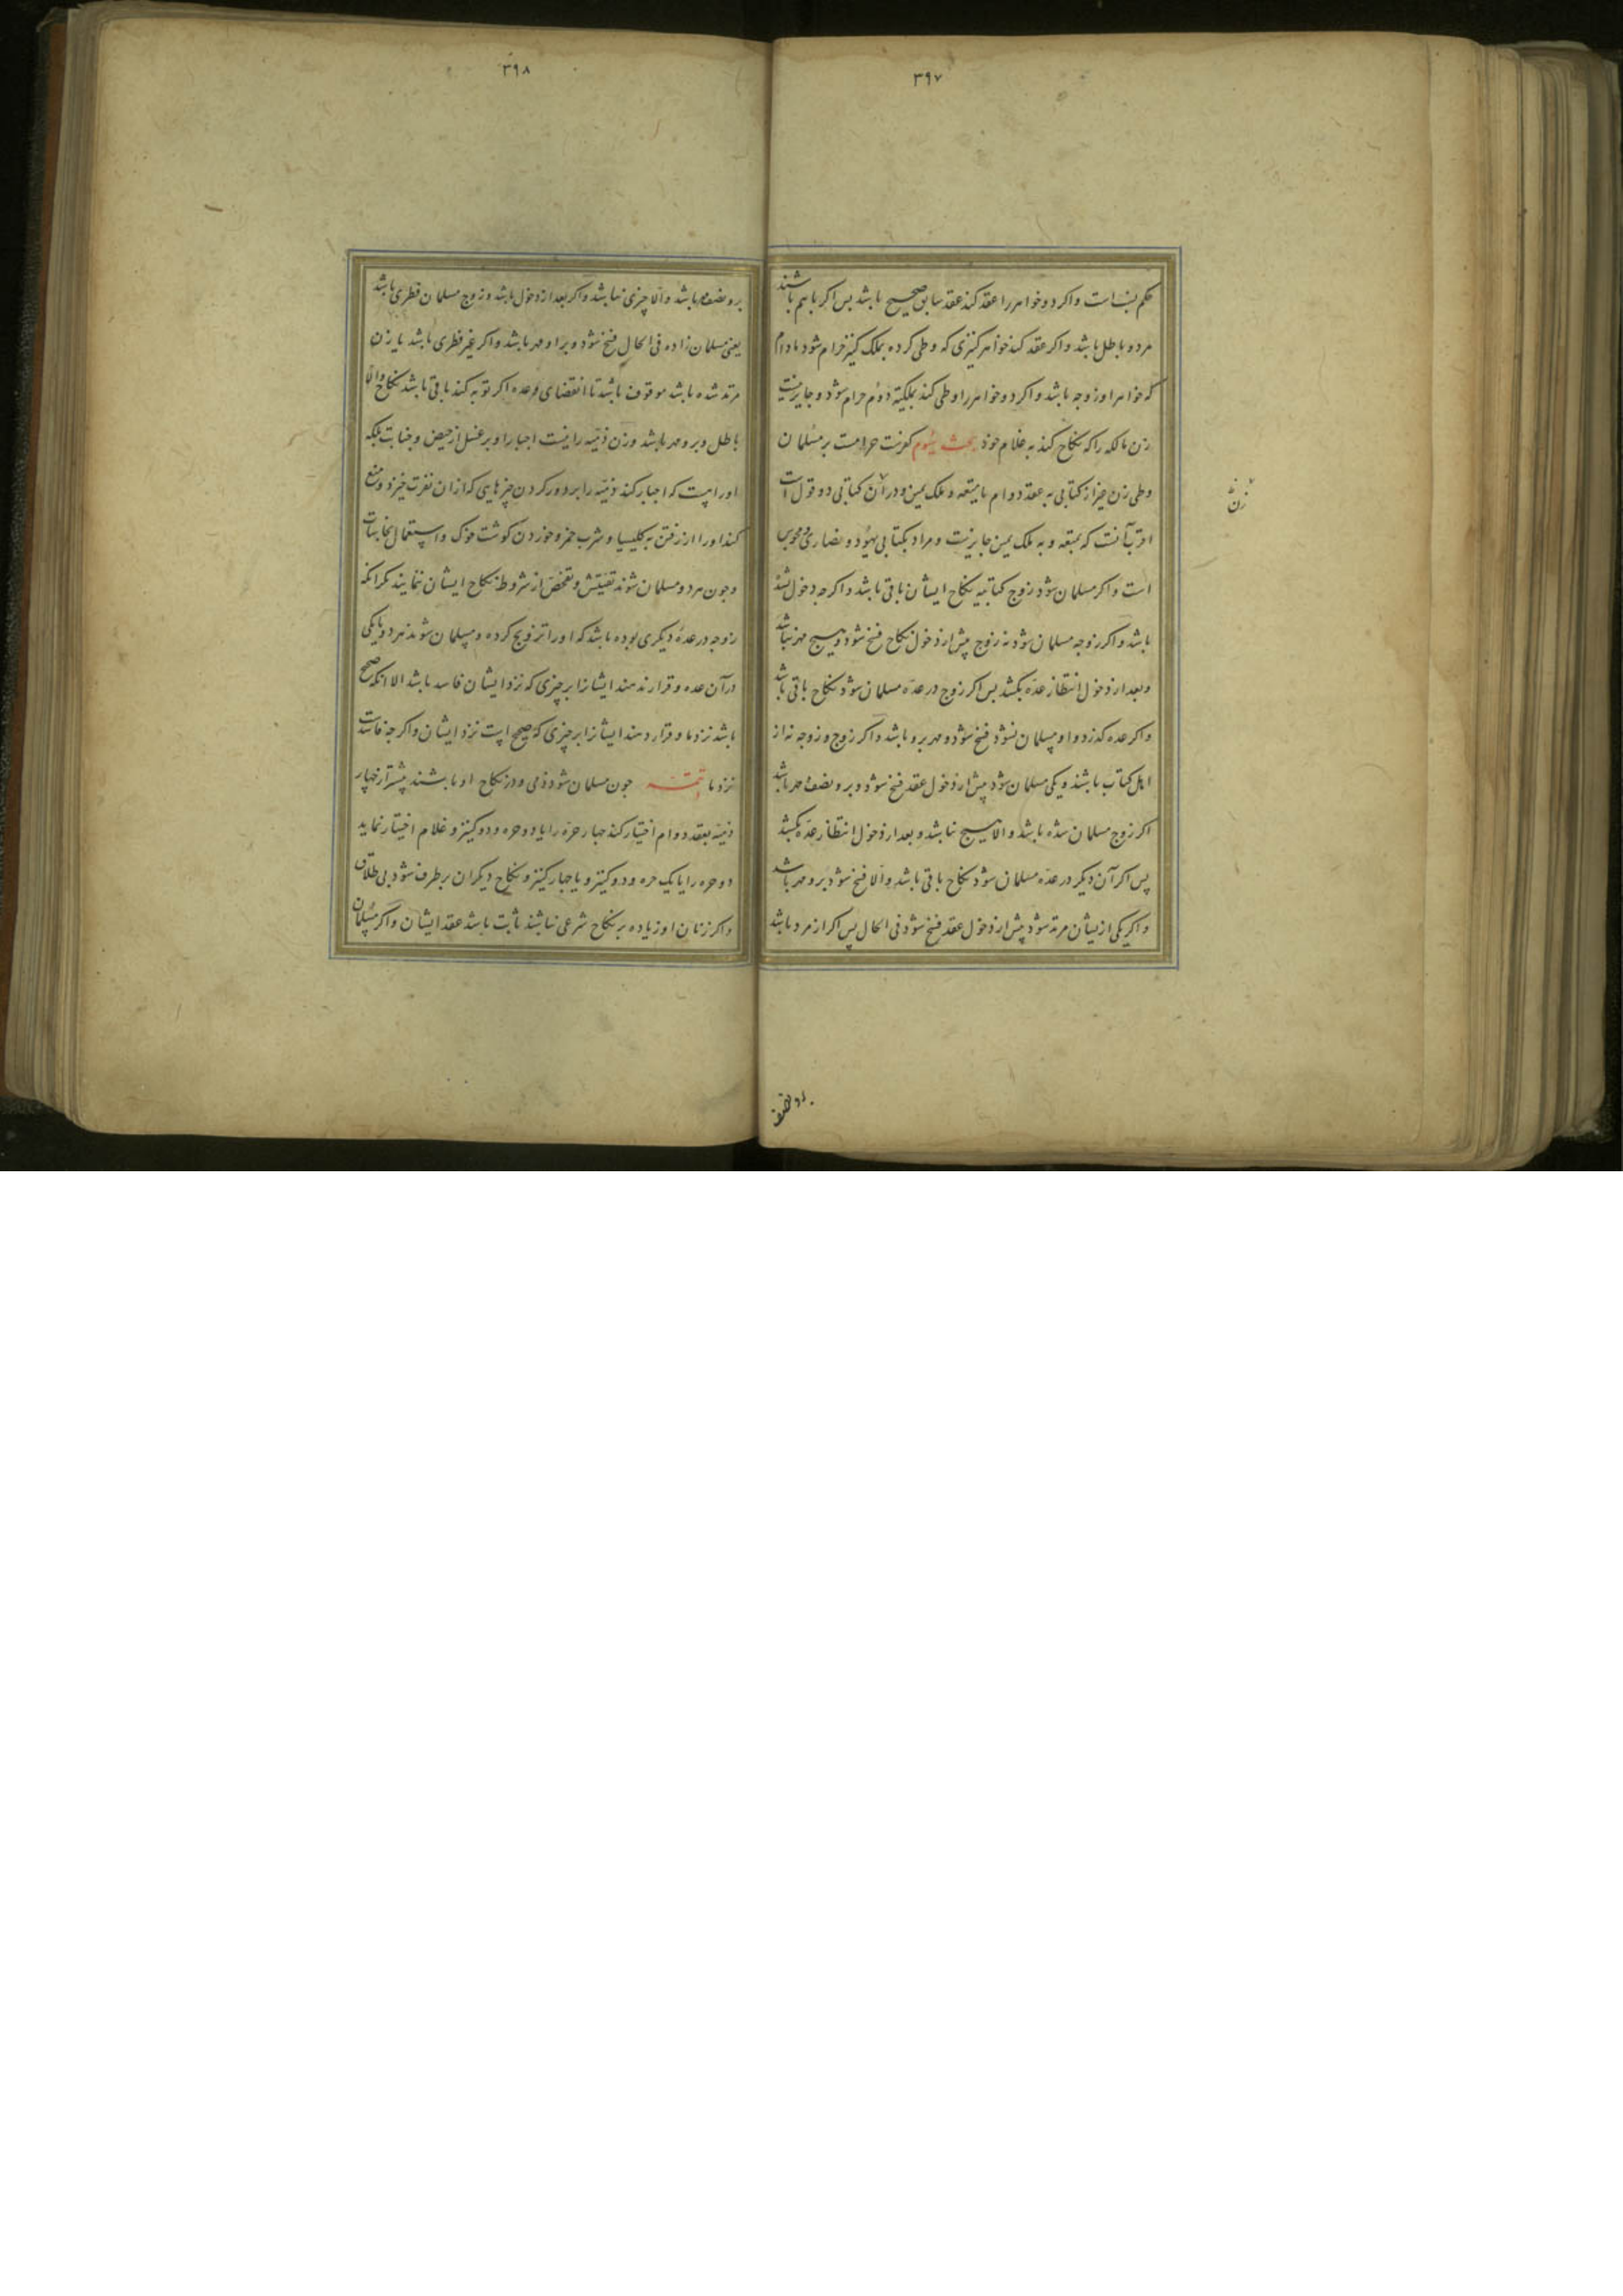 ۳۹۷
حکم نیست و اکر دو خواهر را عقد کند عقد سابق صحیح باشد پس اکر با هم باشند
هر دو باطل باشد و اکر عقد کند خواهر کنیزی که وطی کرده بملک کنیز حرام شود مادام
که خواهر او زوجه باشد و اکر دو خواهر را وطی کند بملکیة دوم حرام شود و جایز نیست
زن مالکه را که نکاح کند به غلام خود بحث سیوم کفرست حرامست بر مسلمان
وطی زن غیر از کتابی به عقد دوام یا متعه و ملک یمین و در آن کتابی دو قول است
زن
اقرب آنست که بمتعه و به ملک یمین جایزست و مراد بکتابی یهود و نصاری و مجوس
است و اکر مسلمان شود زوج کتابیه نکاح ایشان باقی باشد و اکرچه دخول نشده
باشد و اکر زوجه مسلمان شود نه زوج پیش از دخول نکاح فسخ شود و هیچ مهر نباشد
و بعد از دخول انتظار عده بکشد پس اکر زوج در عده مسلمان شود نکاح باقی باشد
و اکر عده کذرد و او مسلمان نشود فسخ شود و مهر برو باشد و اکر زوج و زوجه نه از
اهل کتاب باشند و یکی مسلمان شود پیش از دخول عقد فسخ شود و برو نصف مهر باشد
اکر زوج مسلمان شده باشد و الا هیچ نباشد و بعد از دخول انتظار عده بکشد
پس اکر آن دیکر در عده مسلمان شود نکاح باقی باشد و الا فسخ شود برو مهر باشد
و اکر یکی از یشان مرتد شود پیش از دخول عقد فسخ شود فی الحال پس اکر از مرد باشد
برو نصف
۳۹۸
برو نصف مهر باشد و الا چیزی نباشد و اکر بعد از دخول باشد و زوج مسلمان فطری باشد
یعنی مسلمان زاده فی الحال فسخ شود و برا و مهر باشد و اکر غیر فطری باشد یا زن
مرتد شده باشد موقوف باشد تا انقضای عده اکر توبه کند باقی باشد نکاح و الا
باطل و برو مهر باشد و زن ذمیه را نیست اجبار او بر غسل از حیض و جنابت بلکه
او راست که اجبار کند ذمیه را بر دور کردن چیزهایی که ازان نفرت خیزد و منع
کند او را از رفتن به کلیسیا و شرب خمر و خوردن کوشت خوک و استعمال نجاسات
و چون هر دو مسلمان شوند تفتیش و تفحص از شروط نکاح ایشان ننمایند مکر انکه
زوجه در عدهٔ دیکری بوده باشد که او را تزویج کرده و مسلمان شوند هر دو یا یکی
در آن عده و قرار ندهند ایشانرا بر چیزی که نزد ایشان فاسد باشد الا انکه صحیح
باشد نزد ما و قرار دهند ایشانرا بر چیزی که صحیح است نزد ایشان و اکر چه فاسدست
نزد ما تتمه چون مسلمان شود ذمی و در نکاح او باشند بیشتر از چهار
ذمیه بعقد دوام اختیار کند چهار حره را یا دو حره و دو کنیز و غلام اختیار نماید
دو حره را یا یک حره و دو کنیز و یا چهار کنیز و نکاح دیکران برطرف شود بی طلاق
و اکر زنان او زیاده بر نکاح شرعی نباشند ثابت باشد عقد ایشان و اکر مسلمان